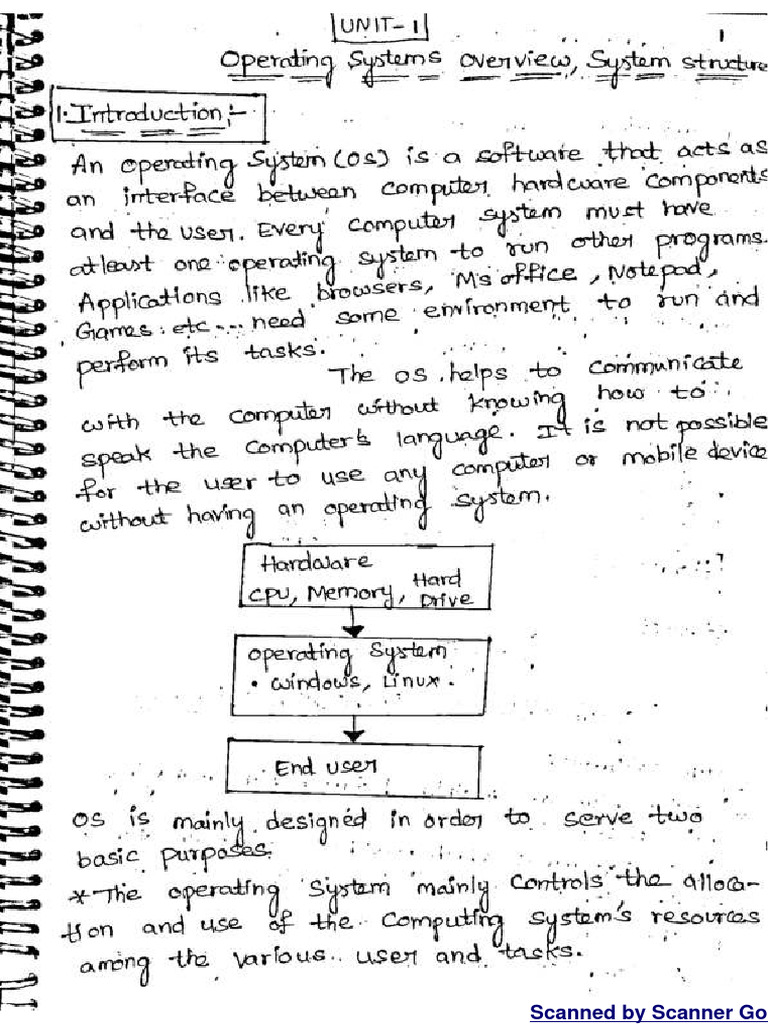 UNIT-1
1
Operating Systems overview, System structure
1. Introduction:-
An operating System (OS) is a software that acts as
an interface between computer hardware components
and the user. Every computer system must have
atleast one operating system to run other programs.
Applications like browsers, Ms office, Notepad,
Games etc... need some environment to run and
perform its tasks.
The OS helps to communicate
with the computer without knowing how to
speak the computer's language. It is not possible
for the user to use any computer or mobile device
without having an operating system.
Hardware
CPU, Memory, Hard Drive
Operating System
• Windows, Linux.
End user
OS is mainly designed in order to serve two
basic purposes.
* The operating System mainly controls the alloca-
tion and use of the Computing System's resources
among the various user and tasks.
Scanned by Scanner Go